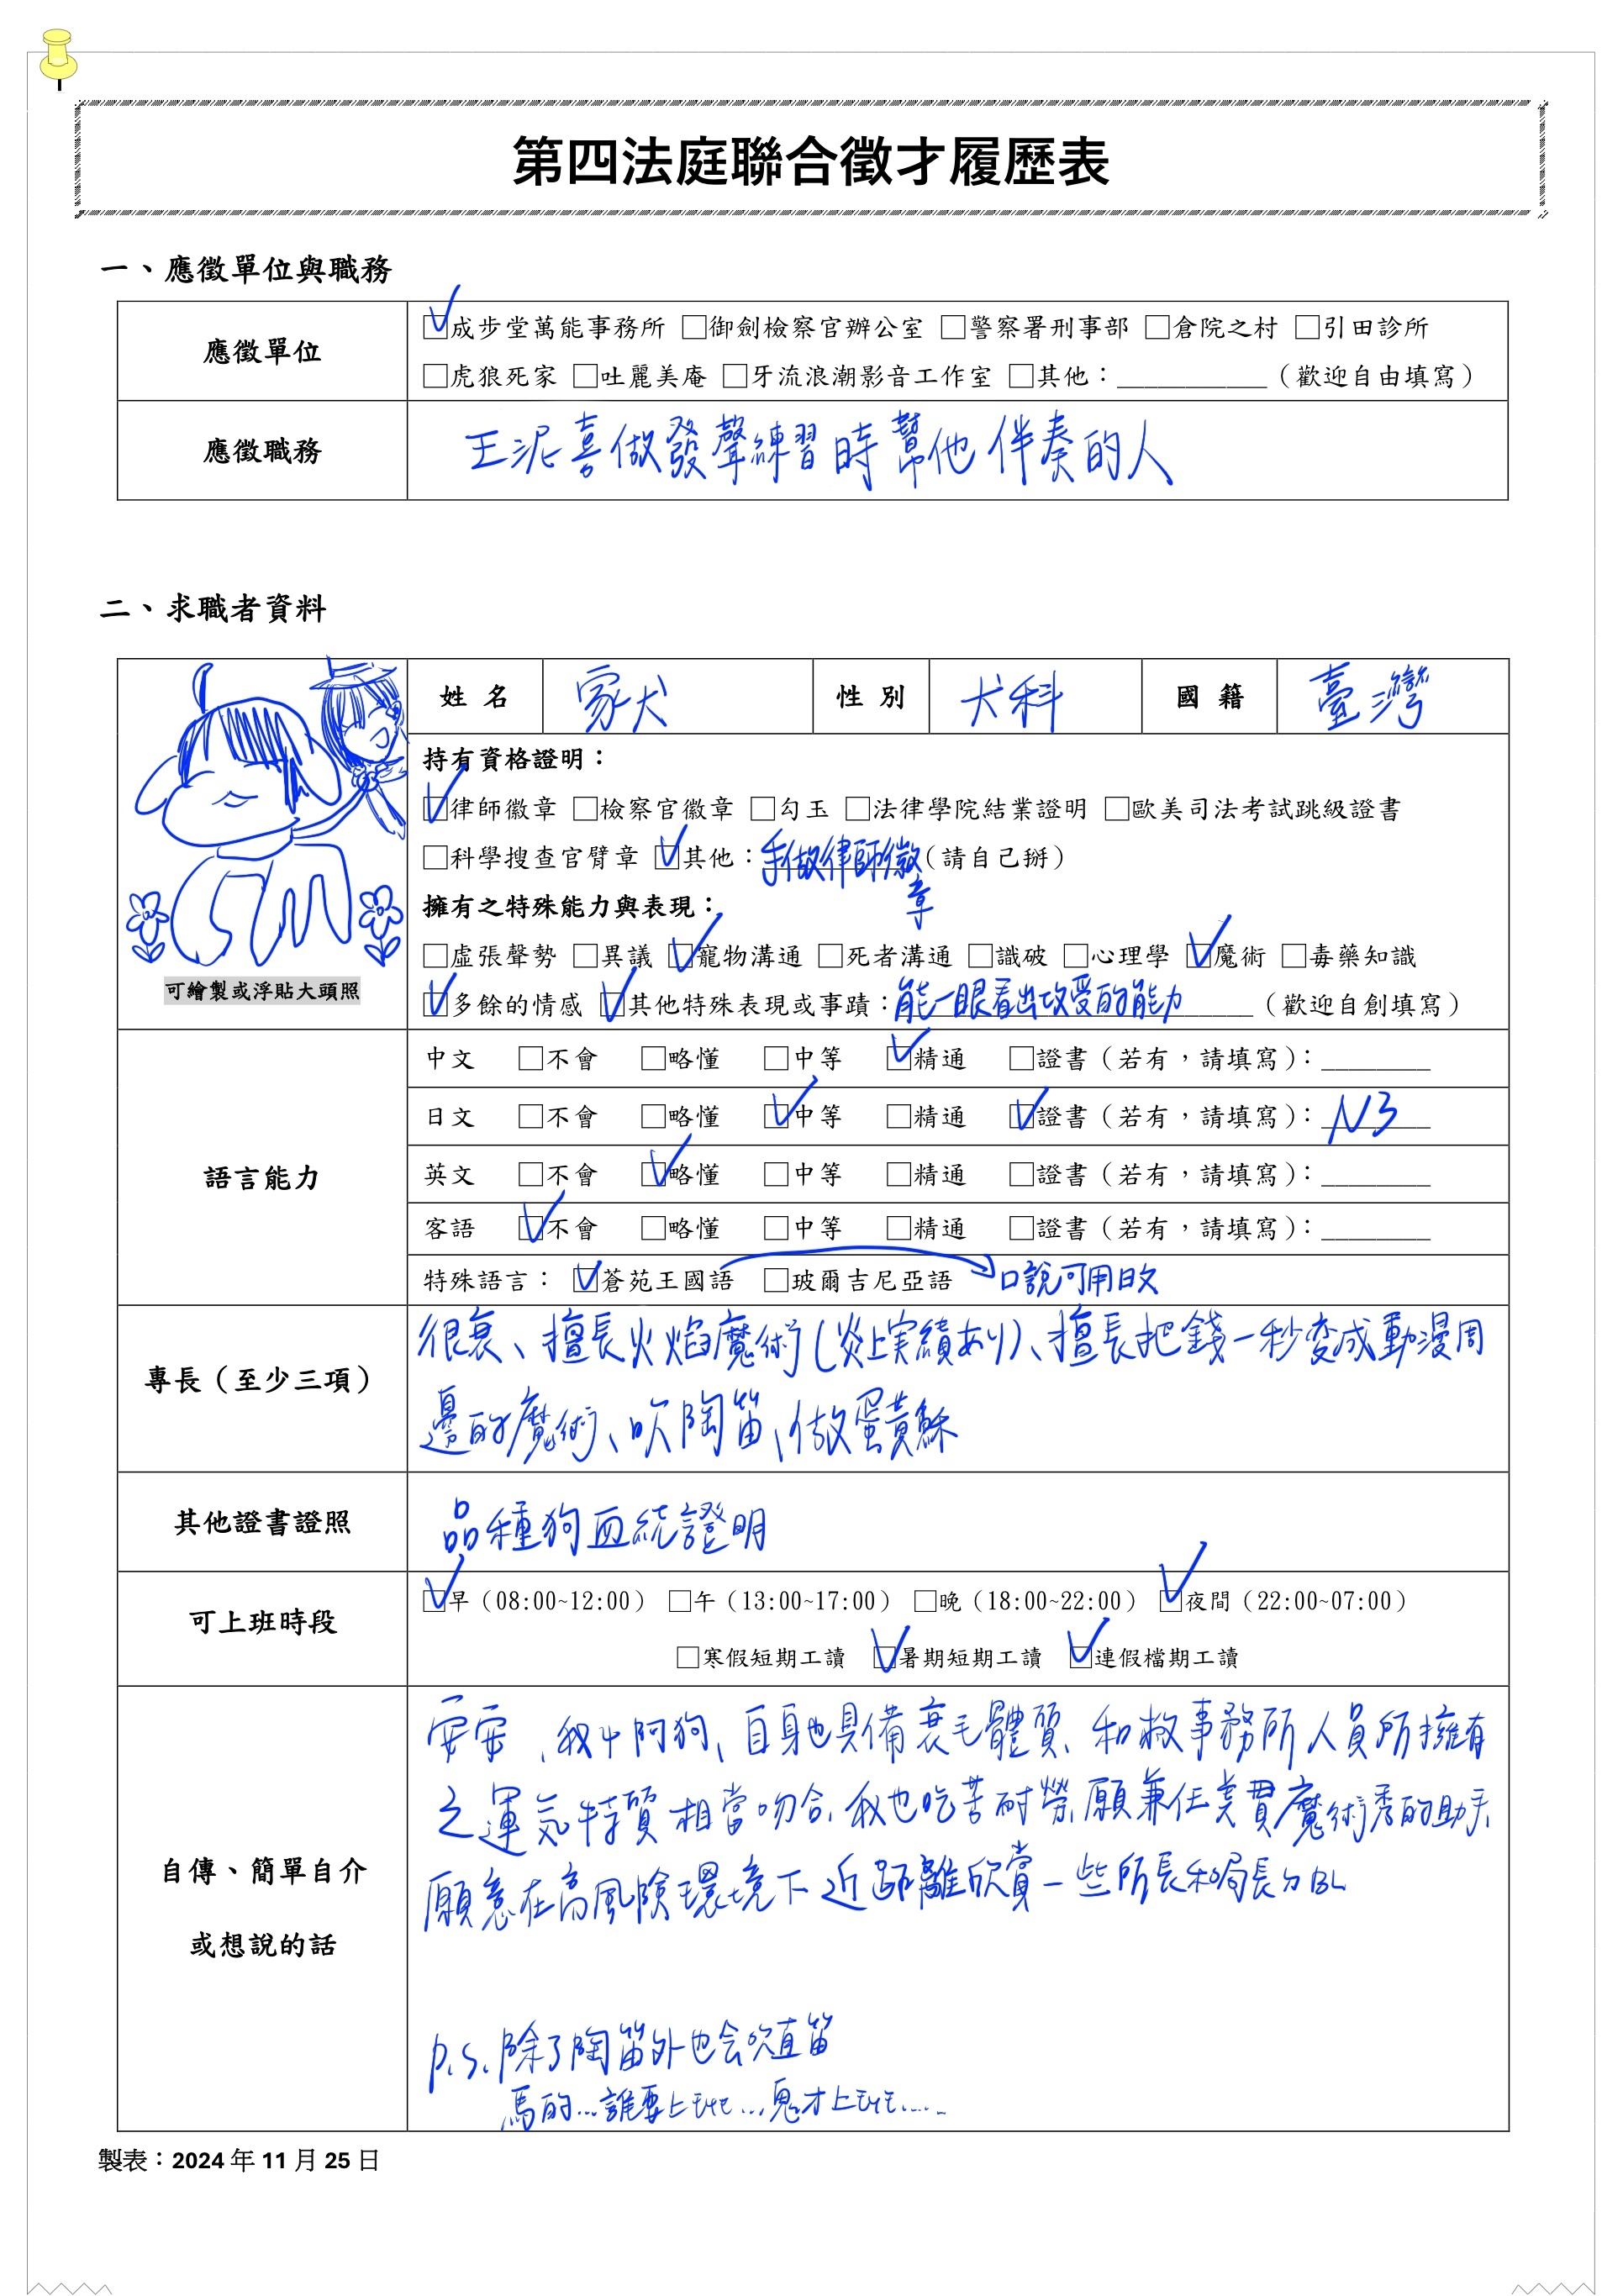 第四法庭聯合徵才履歷表
一、應徵單位與職務
應徵單位
☑成步堂萬能事務所 □御劍檢察官辦公室 □警察署刑事部 □倉院之村 □引田診所
□虎狼死家 □吐麗美庵 □牙流浪潮影音工作室 □其他：___________（歡迎自由填寫）
應徵職務
王泥喜做發聲練習時幫他伴奏的人
二、求職者資料
可繪製或浮貼大頭照
姓 名 家犬 性 別 犬科 國 籍 臺灣
持有資格證明：
☑律師徽章 □檢察官徽章 □勾玉 □法律學院結業證明 □歐美司法考試跳級證書
□科學搜查官臂章 ☑其他：手做律師徽章（請自己掰）
擁有之特殊能力與表現：
□虛張聲勢 □異議 ☑寵物溝通 □死者溝通 □識破 □心理學 ☑魔術 □毒藥知識
☑多餘的情感 ☑其他特殊表現或事蹟：能一眼看出攻受的能力_____（歡迎自創填寫）
語言能力
中文 □不會 □略懂 □中等 ☑精通 □證書（若有，請填寫）：________
日文 □不會 □略懂 ☑中等 □精通 ☑證書（若有，請填寫）：N3
英文 □不會 ☑略懂 □中等 □精通 □證書（若有，請填寫）：________
客語 ☑不會 □略懂 □中等 □精通 □證書（若有，請填寫）：________
特殊語言： ☑蒼苑王國語 □玻爾吉尼亞語 口說可用日文
專長（至少三項）
很衰、擅長火焰魔術(炎上実績あり)、擅長把錢一秒变成動漫周
邊的魔術、吹陶笛、做蛋黃酥
其他證書證照
品種狗血統證明
可上班時段
☑早（08:00~12:00） □午（13:00~17:00） □晚（18:00~22:00） ☑夜間（22:00~07:00）
□寒假短期工讀 ☑暑期短期工讀 ☑連假檔期工讀
自傳、簡單自介
或想說的話
安安、我叫阿狗、自身也具備衰毛體質、和敝事務所人員所擁有
之運氣特質相當吻合、我也吃苦耐勞、願兼任美貫魔術秀的助手、
願意在高風険環境下近距離欣賞一些所長和局長ㄉBL
P.S.除了陶笛外也会吹直笛
馬的...誰要上班...鬼才上班......
製表：2024 年 11 月 25 日